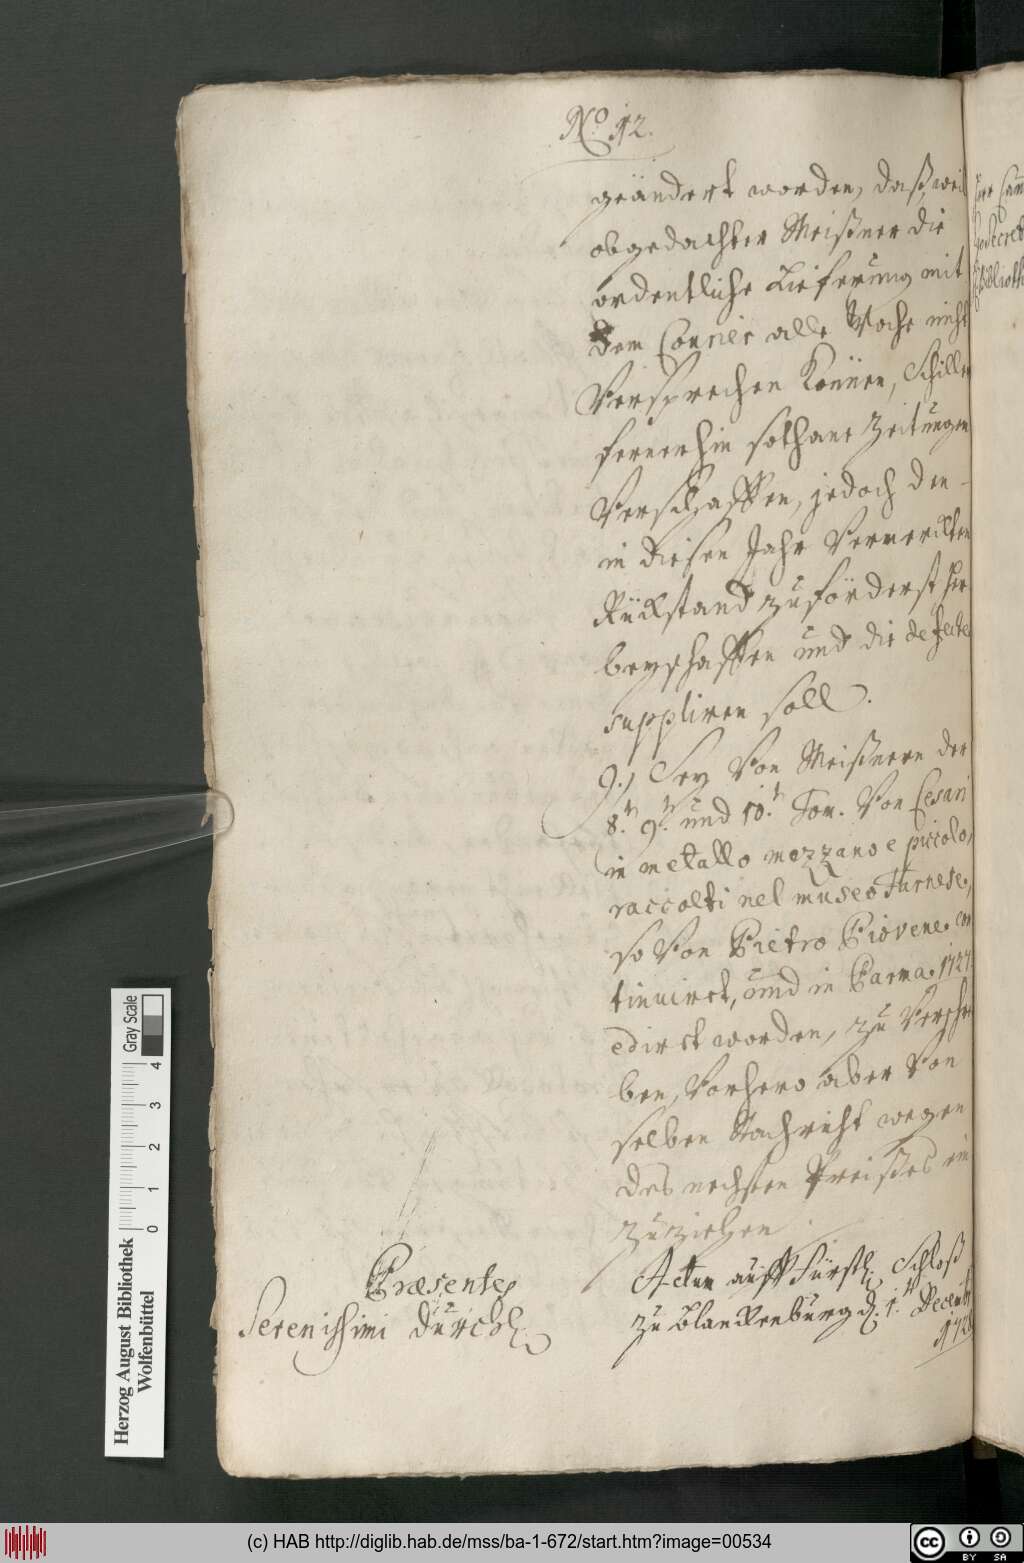 No. 12.
geändert worden, daß, weil
obgedachter Meißner die
ordentliche Lieferung mit
dem Courier alle Woche nicht
Versprechen Können, Schiller
fernerhin sothane Zeitungen
Verschaffen, jedoch den
in diesen Jahr Vermerckten
Rückstand zuförderst her
beyschaffen und die defecte
suppliren soll.
9.) Sey Von Meißnern der
8.t 9.t und 10.t Tom. Von Cesari
in metallo mezzano e piccolo,
raccolti nel museo Farnese,
so Von Pietro Piovene con
tinuirct, und in Parma. 1727
edirct worden, zu Verschrei
ben, Vorhero aber Von
selben Nachricht wegen
des nechsten Preißes ein
zuziehen
Præsente
Serenissimi Durchl.
Actum auff Fürstl. Schloß
zu Blanckenburg d. 1.t Decembr
Bibliothe
Gray Scale
0 1 2 3 4
Herzog August Bibliothek
Wolfenbüttel
(c) HAB http://diglib.hab.de/mss/ba-1-672/start.htm?image=00534
cc BY SA